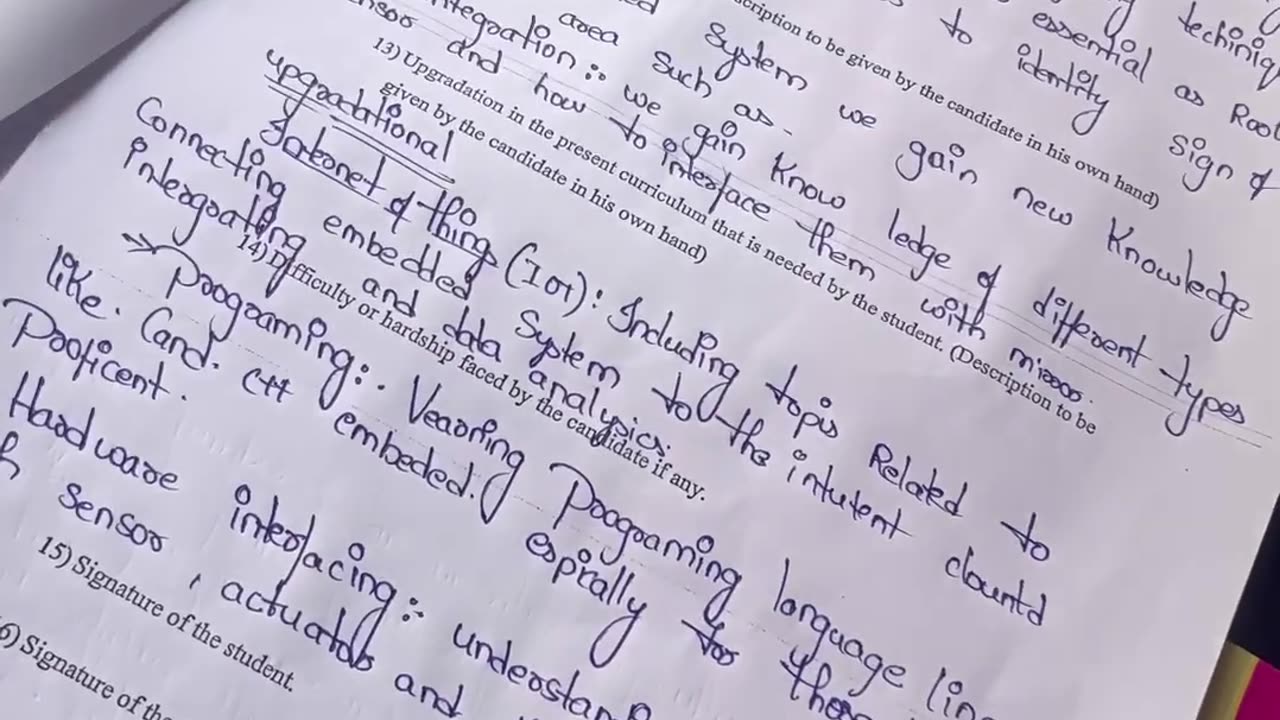 techiniq
essential as Root
to identity sign of
scription to be given by the candidate in his own hand)
System we gain new Knowledge
area such as.
ntegration :- we gain Know ledge of different types
ensor and how to interface them with micro.
13) Upgradation in the present curriculum that is needed by the student. (Description to be
given by the candidate in his own hand)
upgradational
Intenet of thing (IOT): Including topis Related to
Connecting embedded System to the intutent clountd
intergrating and data analysics.
14) Difficulty or hardship faced by the candidate if any.
→ Programing:- Vearning Programing language lin
like. C and. C++ embeded. espirally for those
Proficent.
Hardware interfacing :- understan
h sensor, actuators and
15) Signature of the student.
6) Signature of the